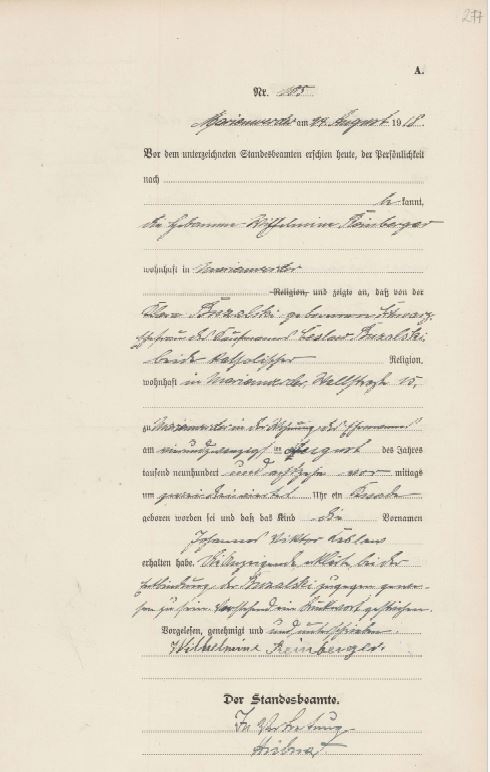 277
A.
Nr. 185
Marienwerder am 24. August 1918
Vor dem unterzeichneten Standesbeamten erschien heute, der Persönlichkeit
nach
be kannt,
die Hebamme Wilhelmine Reinberger
wohnhaft in Marienwerder
Religion, und zeigte an, daß von der
geborenen
Ehefrau des Kaufmanns
beide katholischer Religion,
wohnhaft in Marienwerder, 15,
zu Marienwerder in der Wohnung des Ehemannes
am vierundzwanzigsten August des Jahres
tausend neunhundert und achtzehn vor mittags
um Uhr ein Knabe
geboren worden sei und daß das Kind die Vornamen
Johannes Viktor
erhalten habe. Die Anzeigende bei der
Entbindung der zugegen gewe-
sen zu sein. Vorstehend ein Druckwort gestrichen.
Vorgelesen, genehmigt und unterschrieben.
Wilhelmine Reinberger.
Der Standesbeamte.
In Vertretung